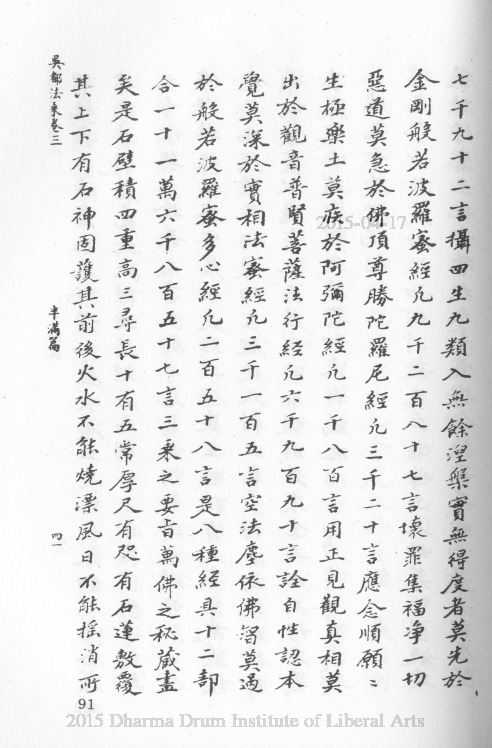 七千九十二言攝四生九類入無餘涅槃實無得度者莫先於
金剛般若波羅蜜經凡九千二百八十七言壞罪集福净一切
惡道莫急於佛頂尊勝陀羅尼經凡三千二十言應念順願〻
生極樂土莫疾於阿彌陀經凡一千八百言用正見觀真相莫
出於觀音普賢菩薩法行経凡六千九百九十言詮自性認本
覺莫深於實相法蜜經凡三千一百五言空法塵依佛智莫過
於般若波羅蜜多心經凡二百五十八言是八種經具十二部
合一十一萬六千八百五十七言三乘之要旨萬佛之秘藏盡
矣是石壁積四重高三尋長十有五常厚尺有咫有石蓮敷覆
其上下有石神固護其前後火水不能燒漂風日不能摇消所
吳都法乘卷三 半滿篇 四一
91
2015-04-17
2015 Dharma Drum Institute of Liberal Arts